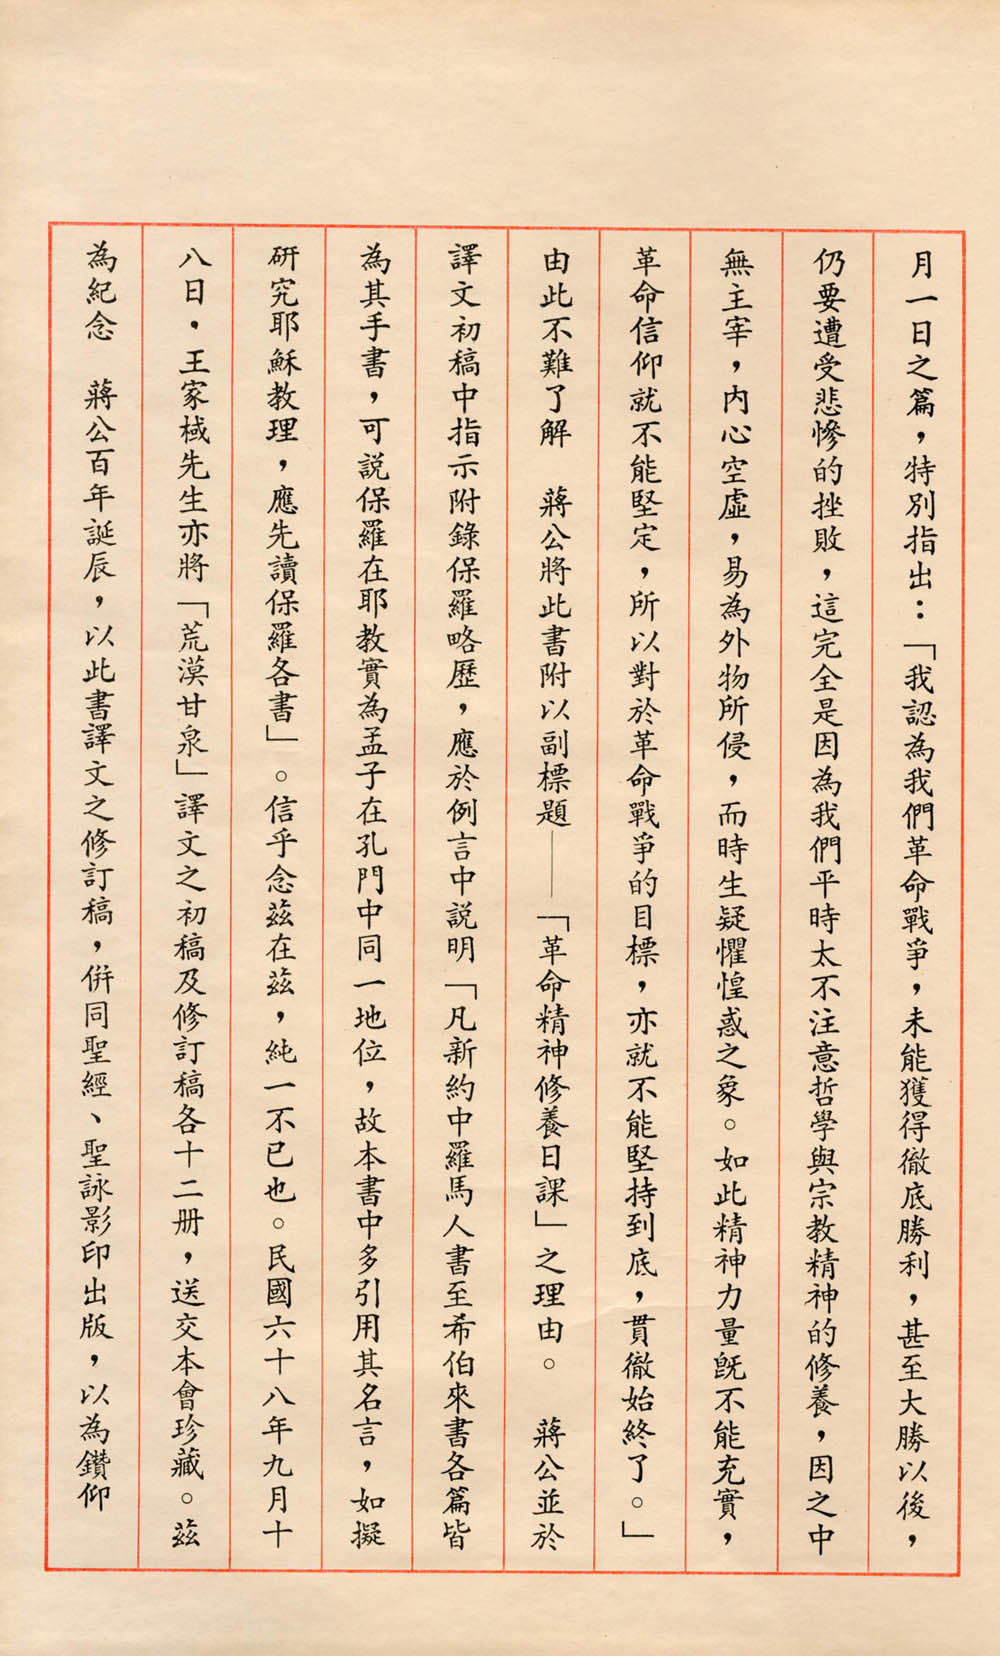 月一日之篇，特別指出：「我認為我們革命戰爭，未能獲得徹底勝利，甚至大勝以後，
仍要遭受悲慘的挫敗，這完全是因為我們平時太不注意哲學與宗教精神的修養，因之中
無主宰，內心空虛，易為外物所侵，而時生疑懼惶惑之象。如此精神力量既不能充實，
革命信仰就不能堅定，所以對於革命戰爭的目標，亦就不能堅持到底，貫徹始終了。」
由此不難了解　蔣公將此書附以副標題——「革命精神修養日課」之理由。　蔣公並於
譯文初稿中指示附錄保羅略歷，應於例言中說明「凡新約中羅馬人書至希伯來書各篇皆
為其手書，可說保羅在耶教實為孟子在孔門中同一地位，故本書中多引用其名言，如擬
研究耶穌教理，應先讀保羅各書」。信乎念茲在茲，純一不已也。民國六十八年九月十
八日，王家棫先生亦將「荒漠甘泉」譯文之初稿及修訂稿各十二册，送交本會珍藏。茲
為紀念　蔣公百年誕辰，以此書譯文之修訂稿，併同聖經、聖詠影印出版，以為鑽仰